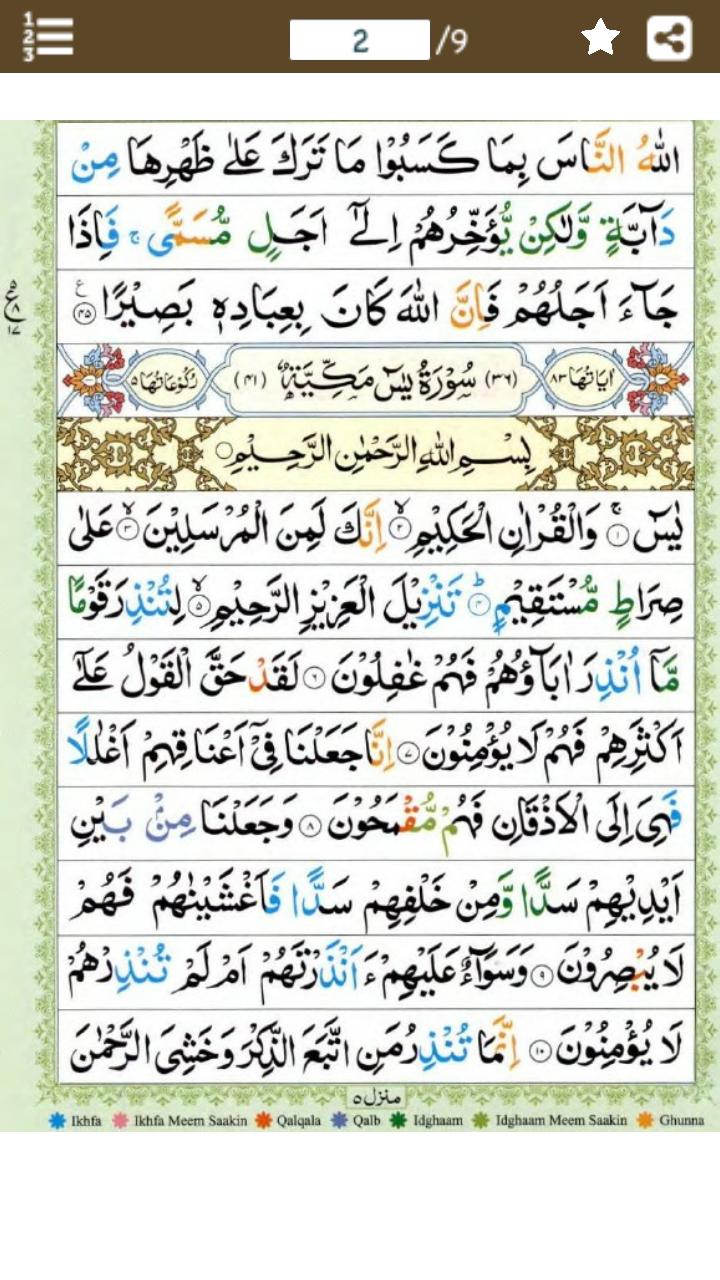 1
2
3
2 /9
اللهُ النَّاسَ بِمَا كَسَبُوْا مَا تَرَكَ عَلٰى ظَهْرِهَا مِنْ
دَآبَّةٍ وَّلٰكِنْ يُّؤَخِّرُهُمْ اِلٰٓى اَجَلٍ مُّسَمًّى ۚ فَاِذَا
جَآءَ اَجَلُهُمْ فَاِنَّ اللهَ كَانَ بِعِبَادِهٖ بَصِيْرًا ۝۴۵ ع
اٰيَاتُهَا ۸۳ (۳۶) سُوْرَةُ يٰسٓ مَكِّيَّةٌ (۴۱) رُكُوْعَاتُهَا ۵
بِسْمِ اللهِ الرَّحْمٰنِ الرَّحِيْمِ ۝
يٰسٓ ۝۱ۚ وَالْقُرْاٰنِ الْحَكِيْمِ ۝۲ۙ اِنَّكَ لَمِنَ الْمُرْسَلِيْنَ ۝۳ۙ عَلٰى
صِرَاطٍ مُّسْتَقِيْمٍ ۝۴ؕ تَنْزِيْلَ الْعَزِيْزِ الرَّحِيْمِ ۝۵ۙ لِتُنْذِرَ قَوْمًا
مَّآ اُنْذِرَ اٰبَآؤُهُمْ فَهُمْ غٰفِلُوْنَ ۝۶ لَقَدْ حَقَّ الْقَوْلُ عَلٰٓى
اَكْثَرِهِمْ فَهُمْ لَا يُؤْمِنُوْنَ ۝۷ اِنَّا جَعَلْنَا فِيْٓ اَعْنَاقِهِمْ اَغْلٰلًا
فَهِيَ اِلَى الْاَذْقَانِ فَهُمْ مُّقْمَحُوْنَ ۝۸ وَجَعَلْنَا مِنْۢ بَيْنِ
اَيْدِيْهِمْ سَدًّا وَّمِنْ خَلْفِهِمْ سَدًّا فَاَغْشَيْنٰهُمْ فَهُمْ
لَا يُبْصِرُوْنَ ۝۹ وَسَوَآءٌ عَلَيْهِمْ ءَاَنْذَرْتَهُمْ اَمْ لَمْ تُنْذِرْهُمْ
لَا يُؤْمِنُوْنَ ۝۱۰ اِنَّمَا تُنْذِرُ مَنِ اتَّبَعَ الذِّكْرَ وَخَشِيَ الرَّحْمٰنَ
منزل ۵
Ikhfa Ikhfa Meem Saakin Qalqala Qalb Idghaam Idghaam Meem Saakin Ghunna